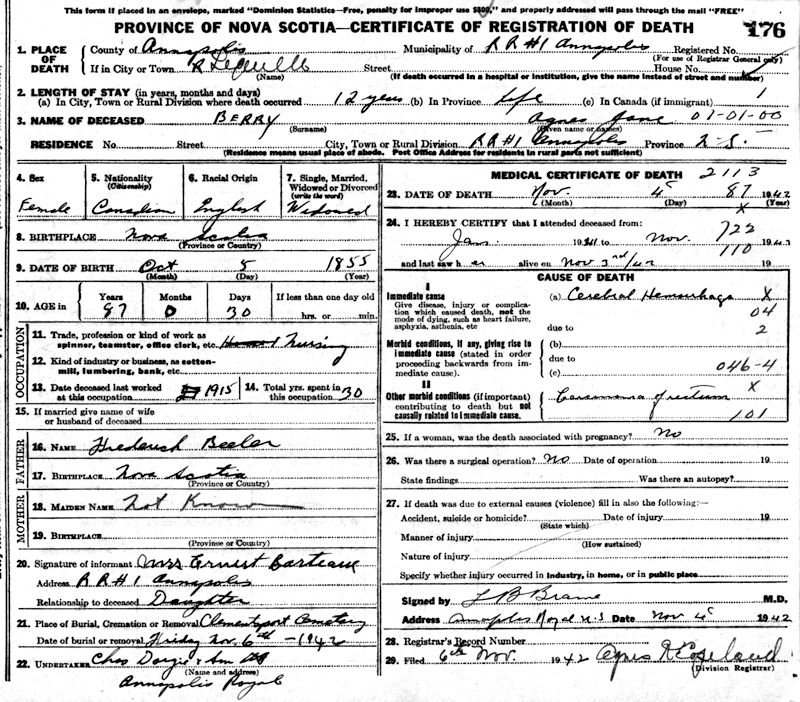 This form if placed in an envelope, marked "Dominion Statistics—Free, penalty for improper use $300," and properly addressed will pass through the mail "FREE"
PROVINCE OF NOVA SCOTIA—CERTIFICATE OF REGISTRATION OF DEATH 176
1. PLACE OF DEATH { County of Annapolis Municipality of R R #1 Annapolis Registered No.
(For use of Registrar General only)
If in City or Town R Lequille Street House No.
(Name) (If death occurred in a hospital or institution, give the name instead of street and number)
2. LENGTH OF STAY (in years, months and days)
(a) In City, Town or Rural Division where death occurred 12 years (b) In Province life (c) In Canada (if immigrant) 1
3. NAME OF DECEASED BERRY Agnes Jane 07-01-00
(Surname) (Given name or names)
RESIDENCE No. Street City, Town or Rural Division RR #1 Annapolis Province 2-5.
(Residence means usual place of abode. Post Office Address for residents in rural parts not sufficient)
4. Sex Female
5. Nationality (Citizenship) Canadian
6. Racial Origin English
7. Single, Married, Widowed or Divorced (write the word) Widowed
8. BIRTHPLACE Nova Scotia
(Province or Country)
9. DATE OF BIRTH Oct 5 1855
(Month) (Day) (Year)
10. AGE in Years Months Days If less than one day old
87 0 30 hrs. or min.
OCCUPATION
11. Trade, profession or kind of work as spinner, teamster, office clerk, etc. Nursing
12. Kind of industry or business, as cotton-mill, lumbering, bank, etc.
13. Date deceased last worked at this occupation 1915
14. Total yrs. spent in this occupation 30
15. If married give name of wife or husband of deceased
FATHER
16. NAME Frederick Beeler
17. BIRTHPLACE Nova Scotia
(Province or Country)
MOTHER
18. MAIDEN NAME Not Known
19. BIRTHPLACE
(Province or Country)
20. Signature of informant Mrs Ernest Barteaux
Address R R #1 Annapolis
Relationship to deceased Daughter
21. Place of Burial, Cremation or Removal Clementsport Cemetery
Date of burial or removal Friday Nov. 6th —1942
22. UNDERTAKER Chas
(Name and address)
Annapolis Royal
MEDICAL CERTIFICATE OF DEATH 2113
23. DATE OF DEATH Nov. 4 87 1942
(Month) (Day) X (Year)
24. I HEREBY CERTIFY that I attended deceased from:
Jan. 1941 to Nov. 722 19
and last saw her alive on Nov 3rd/42 110 19
CAUSE OF DEATH
I
Immediate cause
Give disease, injury or complication which caused death, not the mode of dying, such as heart failure, asphyxia, asthenia, etc
(a) Cerebral Hemorrhage X
04
due to 2
Morbid conditions, if any, giving rise to immediate cause (stated in order proceeding backwards from immediate cause).
(b)
due to
(c) 046-4
II
Other morbid conditions (if important) contributing to death but not causally related to immediate cause.
X
Carcinoma of rectum
101
25. If a woman, was the death associated with pregnancy? No
26. Was there a surgical operation? No Date of operation 19
State findings Was there an autopsy?
27. If death was due to external causes (violence) fill in also the following:—
Accident, suicide or homicide? Date of injury 19
(State which)
Manner of injury
(How sustained)
Nature of injury
Specify whether injury occurred in industry, in home, or in public place
Signed by L B Brane M.D.
Address Annapolis Royal N.S Date Nov 4 1942
28. Registrar's Record Number
29. Filed 6th Nov. 1942 Agnes
(Division Registrar)